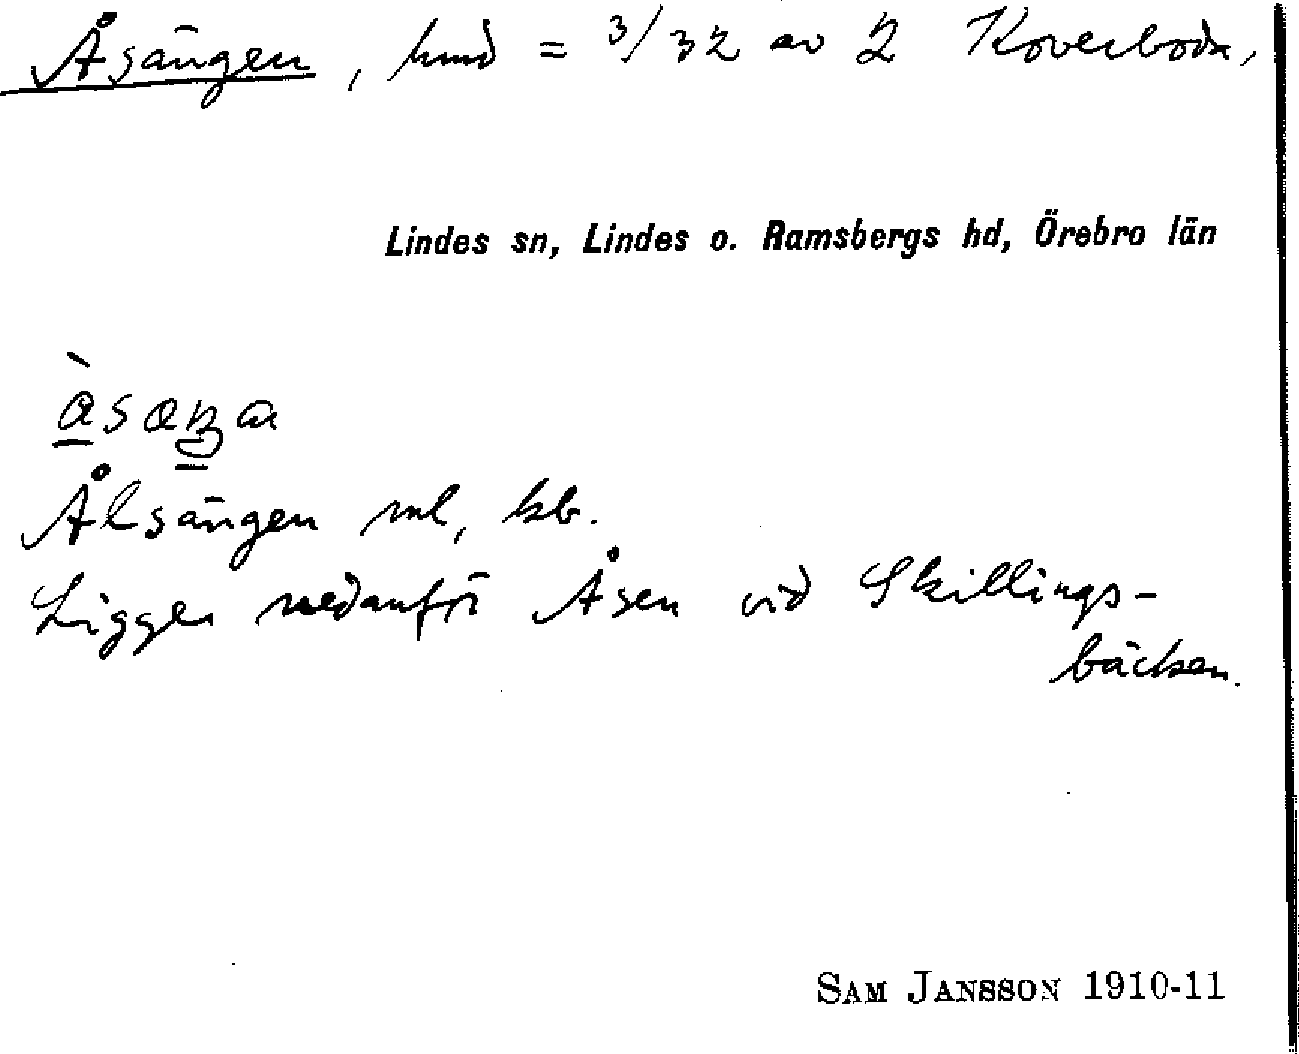 Åsängen, hmd = 3/32 av 2 Koverboda,
Lindes sn, Lindes o. Ramsbergs hd, Örebro län
Ålsängen ml, kb.
Ligger nedanför Åsen vid Skillings-
bäcken.
SAM JANSSON 1910-11